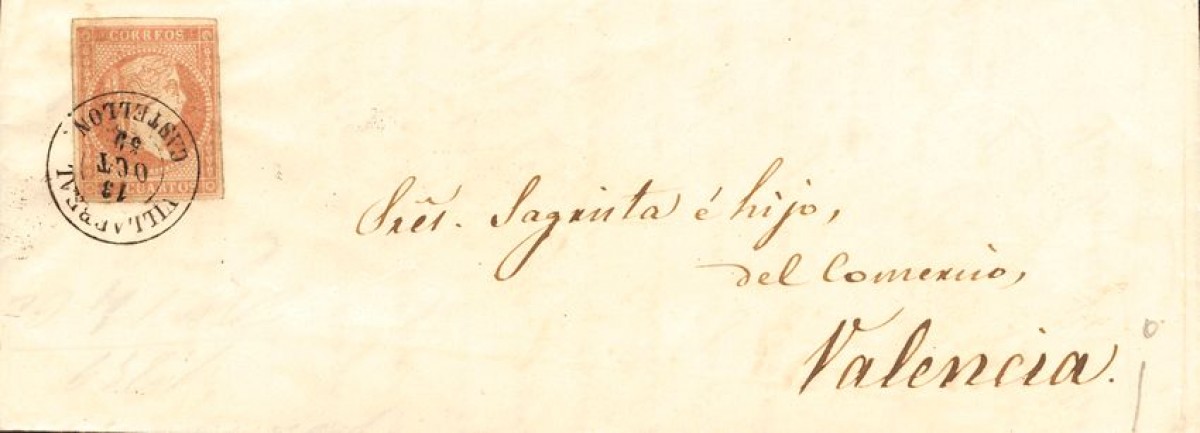 CORREOS
CUARTOS
VILLARREAL
13
OCT
59
CASTELLON
Sres. Sagrista é hijo,
del Comercio,
Valencia.